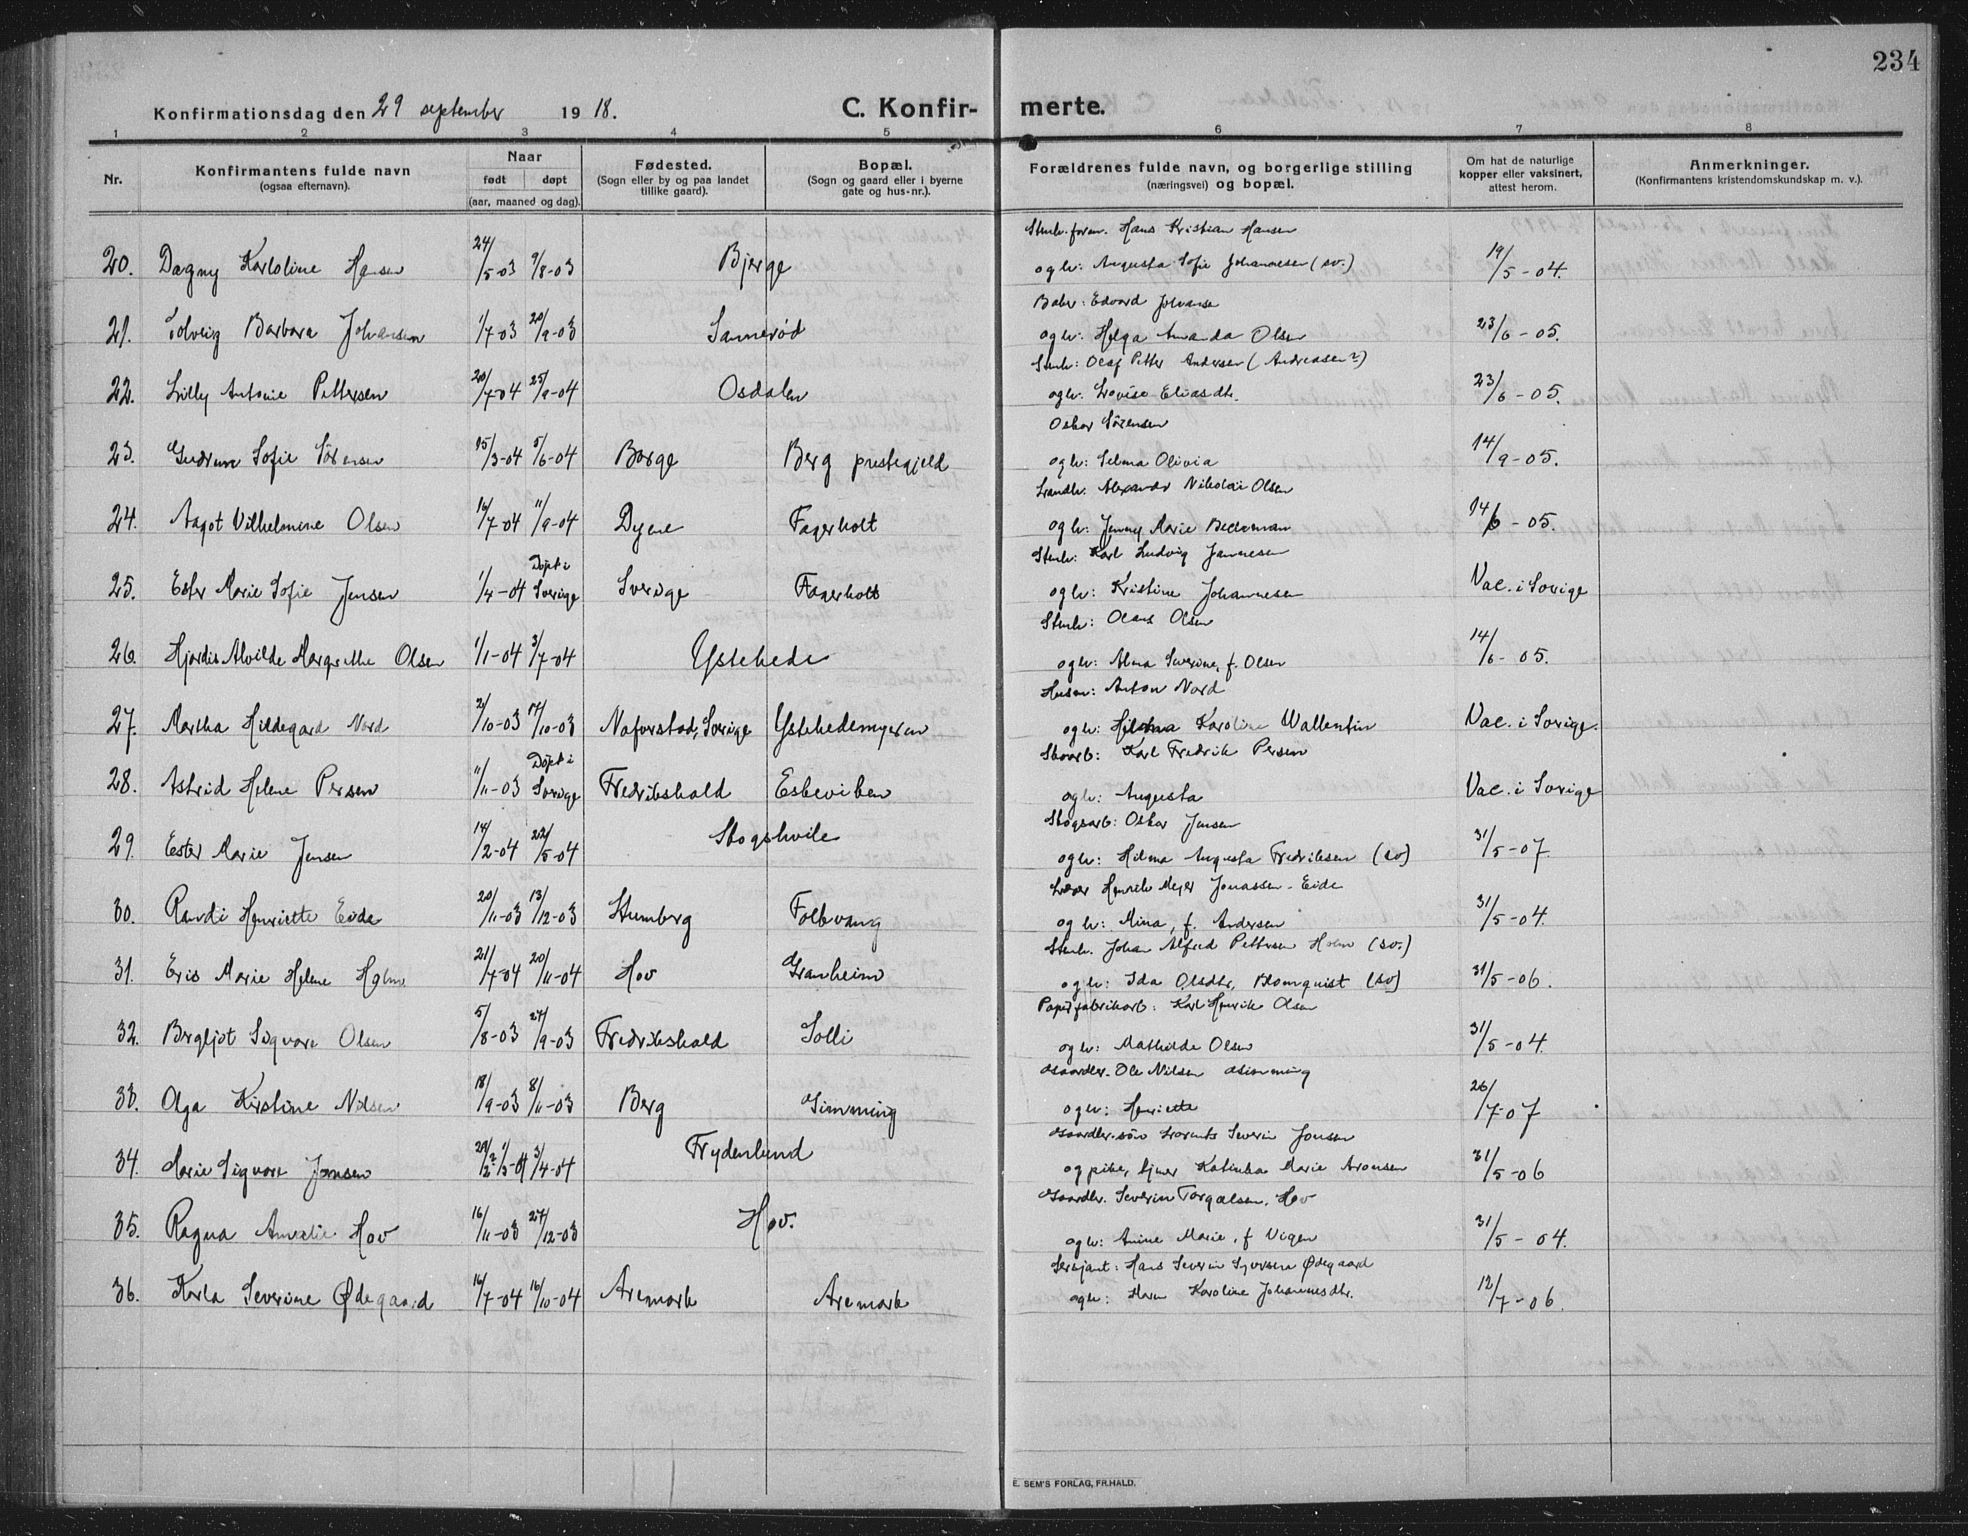 234
Konfirmationsdag den 29 september 1918.
C. Konfir- merte.
1 2 3 4 5 6 7 8
Nr.
Konfirmantens fulde navn
(ogsaa efternavn).
Naar
født døpt
(aar, maaned og dag).
Fødested.
(Sogn eller by og paa landet
tillike gaard).
Bopæl.
(Sogn og gaard eller i byerne
gate og hus-nr.).
Forældrenes fulde navn, og borgerlige stilling
(næringsvei) og bopæl.
Om hat de naturlige
kopper eller vaksinert,
attest herom.
Anmerkninger.
(Konfirmantens kristendomskundskap m. v.).
Stenh. form. Hans Kristian Hansen
20. Dagny Karloline Hansen 24/5-03 9/8-03 Bjerge og hv: Augusta Sofie Johannesen (sv.) 19/5-04.
Edvard Johansen
21. Solveig Barbara Johansen 1/7-03 20/9-03 Sannerød og hv: Helga Amanda Olsen 23/6-05.
Stenh: Olaf Petter Andersen (Andreasen?)
22. Lilly Antonie Pettersen 20/7-04 25/9-04 Osdalen og hv: Lovise Eliasdtr. 23/6-05.
Oskar Sørensen
23. Gudrun Sofie Sørensen 15/3-04 5/6-04 Borge Berg prestegjeld og hv: Selma Olivia 14/9-05.
Alexander Nikolai Olsen
24. Aagot Vilhelmine Olsen 16/7-04 11/9-04 Dyne Fagerholt og hv: Jenny Marie 14/6-05.
Stenh: Karl Ludvig Jannesen
25. Ester Marie Sofie Jensen 1/4-04 Døpt i Sverige Sverige Fagerholt og hv: Kristine Johannesen Vac. i Sverige
Stenh: Olaus Olsen
26. Hjørdis Alvilde Margrethe Olsen 1/1-04 3/7-04 Ystehede og hv: Alma Severine, f. Olsen 14/6-05.
Husm: Anton Nord
27. Martha Hildegard Nord 2/10-03 17/10-03 Naforstad, Sverige Ystehedemyren og hv: Hilma Karoline Wallentin Vac. i Sverige.
Skoarb: Karl Fredrik Persen
28. Astrid Helene Persen 11/11-03 Døpt i Sverige Fredrikshald Eskeviken og hv: Augusta Vac. i Sverige
Skogsarb: Oskar Jensen
29. Ester Marie Jensen 14/2-04 22/5-04 Skogshvile og hv: Hilma Augusta Fredriksen (sv) 31/5-07.
Henrik Meyer Jonassen-Eide
30. Randi Henriette Eide 20/11-03 13/12-03 Stumberg Folkvang og hv: Mina, f. Andersen 31/5-04.
Stenh. Johan Alfred Pettersen Holm (sv.)
31. Eris Marie Helene Holm 21/7-04 20/11-04 Hov Granheim og hv: Ida Olsdtr. Blomquist (sv) 31/5-06.
Papirfabrikarb: Karl Henrik Olsen
32. Bergljot Sigvara Olsen 5/8-03 27/9-03 Fredrikshald Solli og hv: Mathilde Olsen 31/5-04.
Gaardbr. Ole Nilsen Gimming
33. Olga Kirstine Nilsen 18/9-03 8/11-03 Berg Gimming og hv: Henriette 26/7-07
Gaardbr.søn Lorents Severin Jonsen
34. Marie Sigvara Jonsen 29/2? 1/3-04 3/4-04 Frydenlund og pike, tjener Katinka Marie Aronsen 31/5-06
Gaardbr. Severin Torgalsen, Hov
35. Ragna Amalie Hov 16/11-03 27/12-03 Hov. og hv: Anine Marie, f. Vigen 31/5-04.
Sersjant: Hans Severin Syversen Ødegaard
36. Karla Severine Ødegaard 16/7-04 16/10-04 Aremark Aremark og hv: Maren Karoline Johannesdtr. 12/7-06.
E. SEM'S FORLAG, FR.HALD.